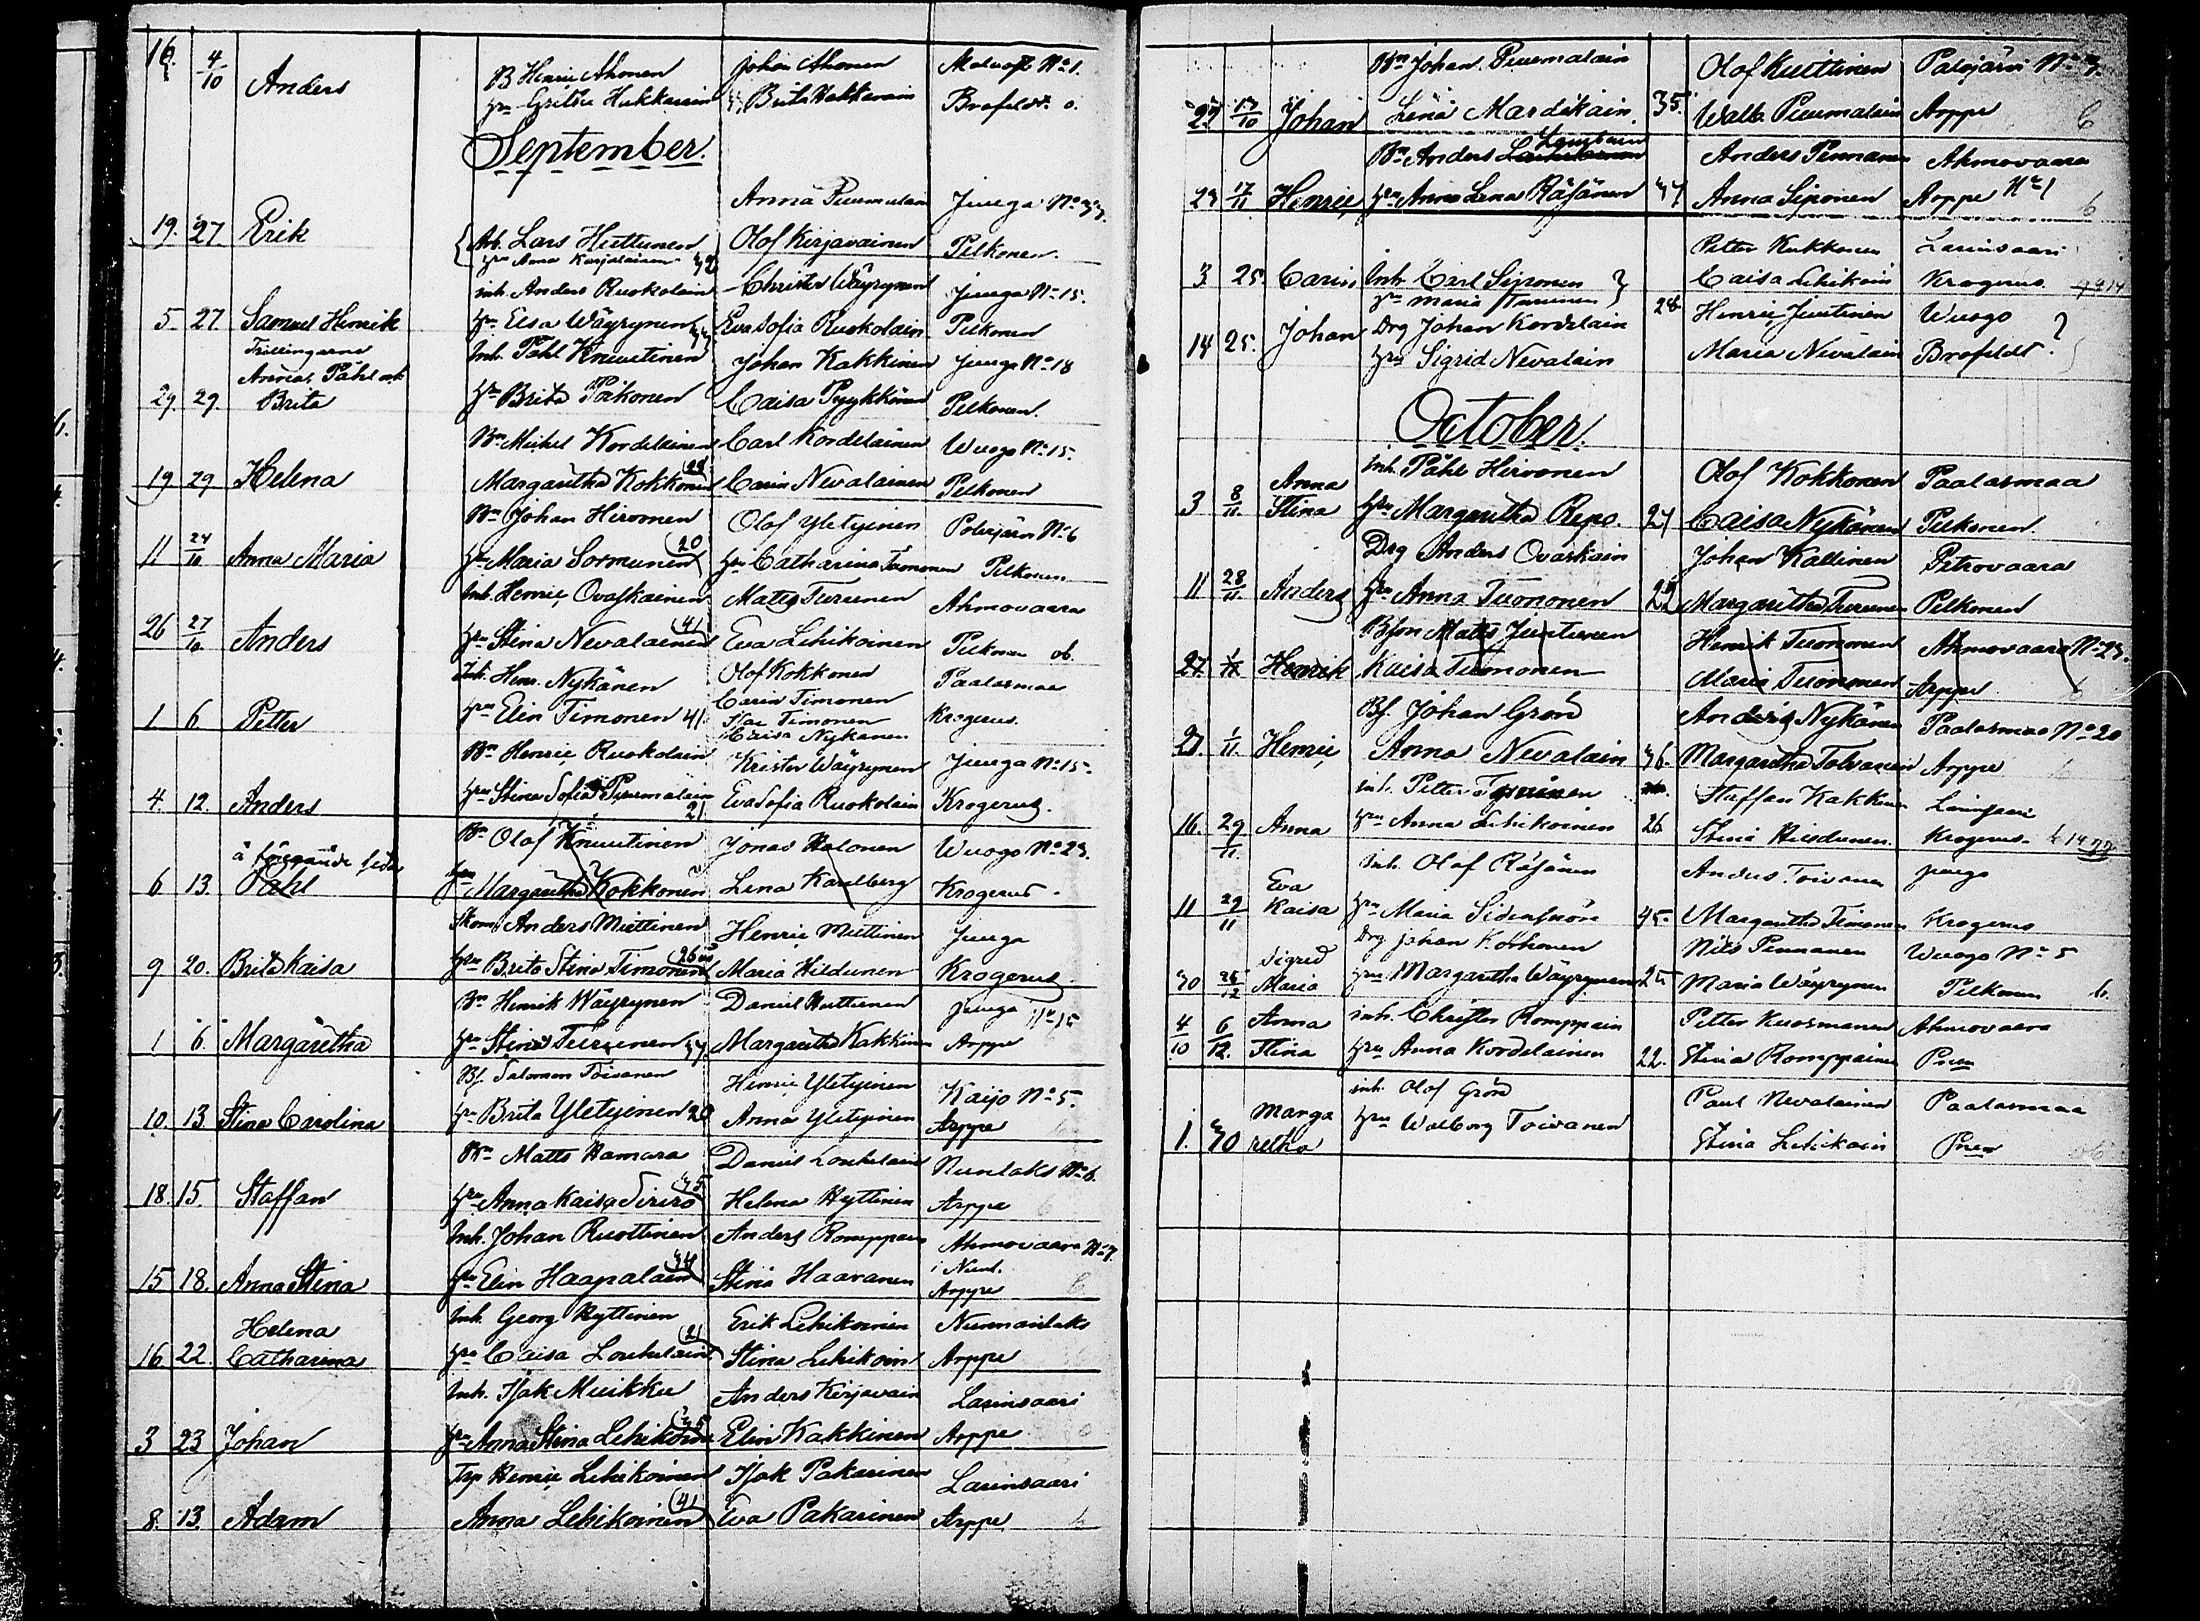 16. 4/10 Anders B Henric Ahonen Johan Ahonen No 1.
hru Hukkarin Brita Brofeldt.
September.
Anna Puumalain Juuga No 33.
19. 27. Erik Lars Huttunen Olof Kirjavainen Pelkonen.
hru Anna Karjalainen 32
inh. Anders Ruokolain Christer Wäyrynen Juuga No 15.
5. 27 Samuel Henrik hru Elsa Wäyrynen 33 Eva Sofia Ruokolain Pelkonen
Trillingarne Inh. Påhl Knuutinen Johan Kakkinen Juuga No 18
Andreas, Påhl och
29. 29. Brita hru Brita Caisa Pyykkönen Pelkonen.
Bn Michel Kordelainen Carl Kordelainen Wuogo No 15.
19 29 Helena Margaretha Kokkonen 29 Carin Nevalainen Pelkonen
Bn Johan Hirvonen Olof Yletyinen Polvijärvi No 6
11 24/10 Anna Maria hru Maria Sormunen 20 hru Catharina Tuononen Pelkonen
Inh. Henric Ovaskainen Matts Turunen Ahmovaara
26 27/10 Anders hru Stina Nevalainen 41 Eva Lehikoinen Pelkonen ob.
Inh. Henr. Nykänen Olof Kokkonen Paalasmaa
Carin Timonen
1 6. Petter hru Elin Timonen 41. Timonen Krogerus.
Caisa Nykänen
Bn Henric Ruokolain Krister Wäyrynen Juuga No 15.
4. 12. Anders hru Stina Sofia Puumalain 21 Eva Sofia Ruokolain Krogerus.
Bn Olof Knuutinen Jonas Halonen Wuogo No 23.
å föregående sida
6 13. Påhl hru Margaretha Kokkonen Lena Karlberg Krogerus.
Anders Miettinen Henric Miettinen Juuga
9 20. Brita Kaisa hru Brita Stina Timonen 26 Maria Hildunen Krogerus.
Bn Henrik Wäyrynen Daniel Huttunen Juuga No 15
1 6. Margaretha hru Stina Turunen 37. Margaretha Kakkinen Arppe
Bf. Salomon Toivanen Henric Yletyinen Kaijo No 5.
10. 13 Stina Carolina hru Brita Yletyinen 20 Anna Yletyinen Arppe
Bn Matts Hamara Daniel Louhelain Nunlaks No 6.
18. 15. Staffan hru Anna Kaisa 35 Helena Hyttinen Arppe 6
Inh. Johan Ruottinen Anders Romppain Ahmovaara No 7.
i Nunl.
15 18. Anna Stina hru Elin Haapalain 34 Stina Haaranen Arppe 6
Inh. Georg Hyttinen Erik Lehikoinen Nunnanlaks
Helena
16 22. Catharina hru Caisa Louhelain 21 Stina Lehikoin Arppe
Inh. Isak Muikku Anders Kirjavain Larinsaari
3 23 Johan hru Anna Stina Lehikoinen 35 Elin Kakkinen Arppe
Henric Lehikoinen Isak Pakarinen Larinsaari
8. 13. Adam Anna Lehikoinen 41 Eva Pakarinen Arppe 6
Bn Johan Puumalain Olof Kuittinen Polvijärvi No 3.
27 17/10 Johan Lena Mardikain 35. Walb. Puumalain Arppe 6
Bn Anders Anders Pennanen Ahmovaara
23 17/11 Henric hru Anna Lena Räsänen 37 Anna Siponen Arppe No 1 6
Petter Kukkonen Larinsaari
3 25. Carin Inh. Carl Siponen Caisa Lehikoin Krogerus.
hru Maria 26
14 25. Johan Drg Johan Kordelain Henric Juutinen Wuogo
hru Sigrid Nevalain Maria Nevalain Brofeldt.
October.
Anna inh. Påhl Hirvonen Olof Kokkonen Paalasmaa
3 8/11. Stina hru Margaretha Repo. 27 Caisa Nykänen Pelkonen.
Drg Anders Ovaskain Johan Kallinen Petrovaara
11 28/11 Anders hru Anna Tuononen 22 Margaretha Turunen Pelkonen
Bson Matts Juutinen Henrik Tuononen Ahmovaara No 23.
27. Henrik Kaisa Tuononen Maria Tuononen Arppe 6
Bf. Johan Grön Anders Nykänen Paalasmaa No 20
27. 1/11. Henric Anna Nevalain 36. Margaretha Tolvanen Arppe
inh. Petter Staffan Kakkinen Larinsaari
16. 29/11. Anna hru Anna Lehikoinen 26 Stina Hildunen. Krogerus.
Inh. Olof Räsänen Anders Toivanen Juuga
Eva
11 29/11 Kaisa hru Maria Sidensnöre 45. Margaretha Timonen Krogerus
Sigrid Drg Johan Korhonen Nils Pennanen Wuogo No 5
30 Maria hru Margaretha Wäyrynen 25 Maria Wäyrynen Pelkonen 6.
Anna inh. Christer Romppain Petter Kuosmanen Ahmovaara
4/10 6/12. Stina hru Anna Kordelainen 22. Stina Romppainen Pnen
inh. Olof Grön Paul Nevalainen Paalasmaa
Marga hru Walborg Toivanen
1. 30 retha Stina Lehikoin Pnen